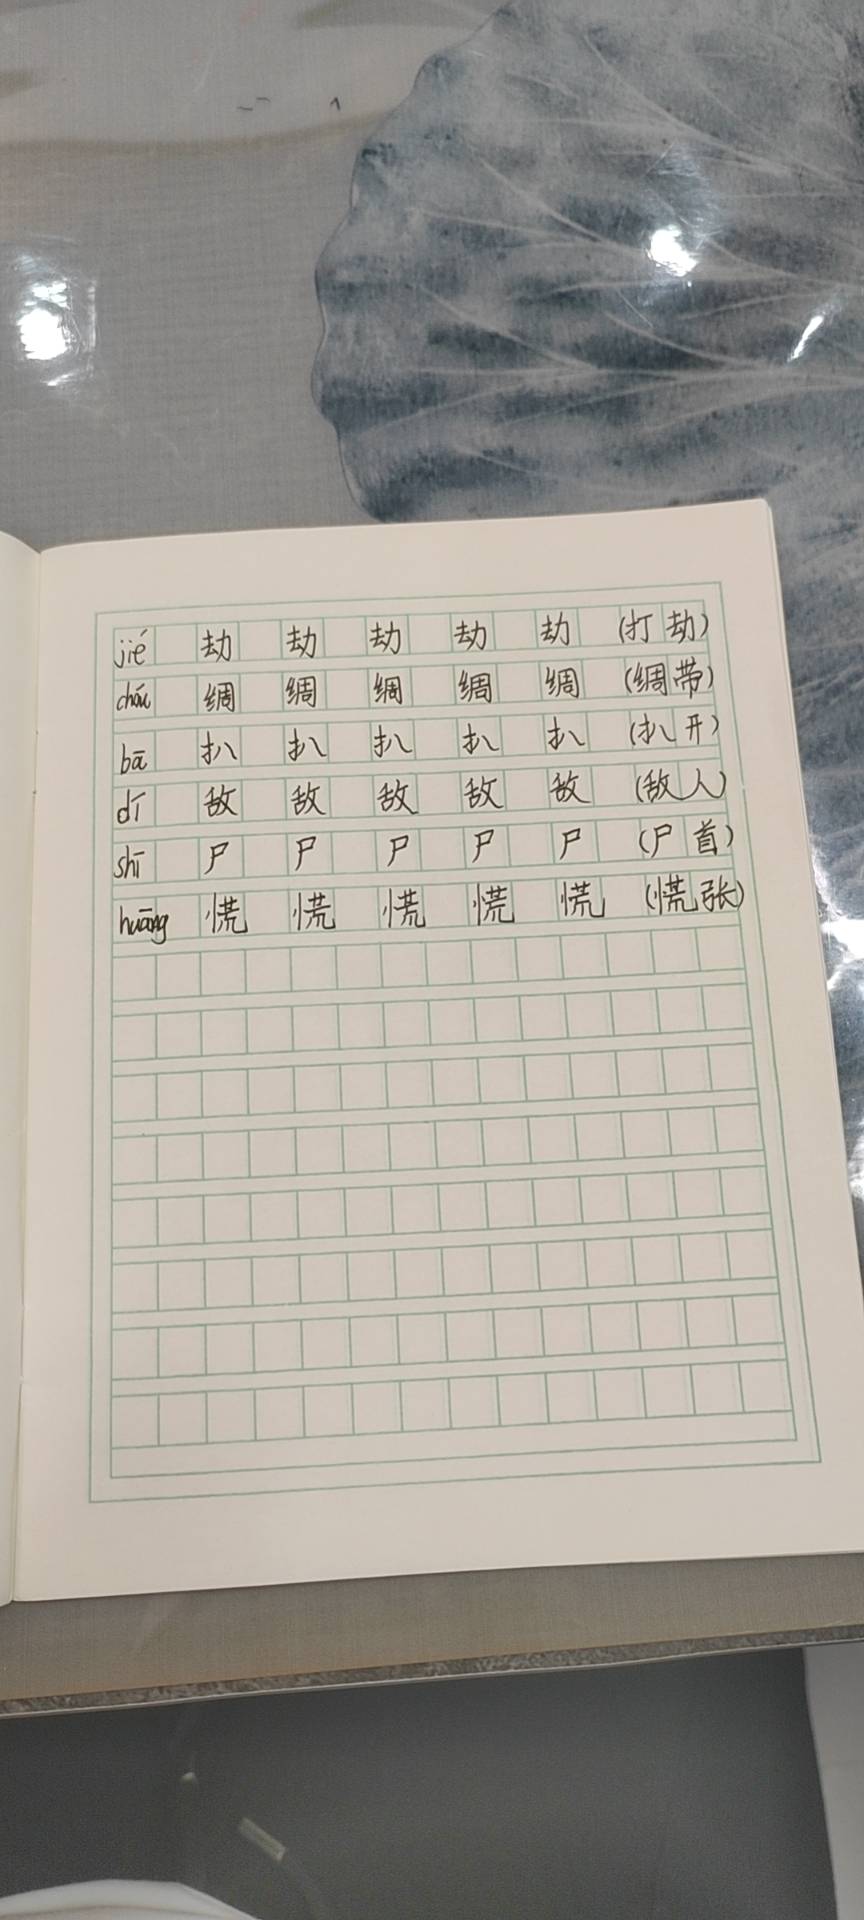 jié 劫 劫 劫 劫 劫 (打劫)
chóu 绸 绸 绸 绸 绸 (绸带)
bā 扒 扒 扒 扒 扒 (扒开)
dí 敌 敌 敌 敌 敌 (敌人)
shī 尸 尸 尸 尸 尸 (尸首)
huāng 慌 慌 慌 慌 慌 (慌张)